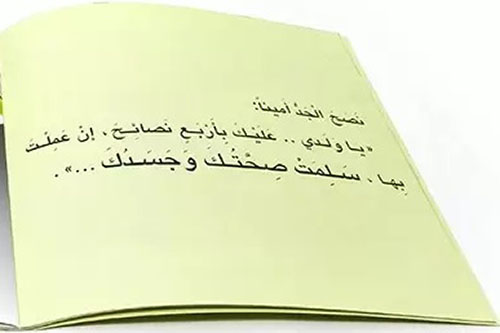 نَصَحَ الْجَدُّ أَمِيناً:
«يـا وَلَدي .. عَلَيْـكَ بِـأَرْبَـعِ نَصائِـحَ ، إِنْ عَمِلْـتَ
بِـها ، سَـلِمَتْ صِحَّتُـكَ وَ جَسَـدُكَ ...» .